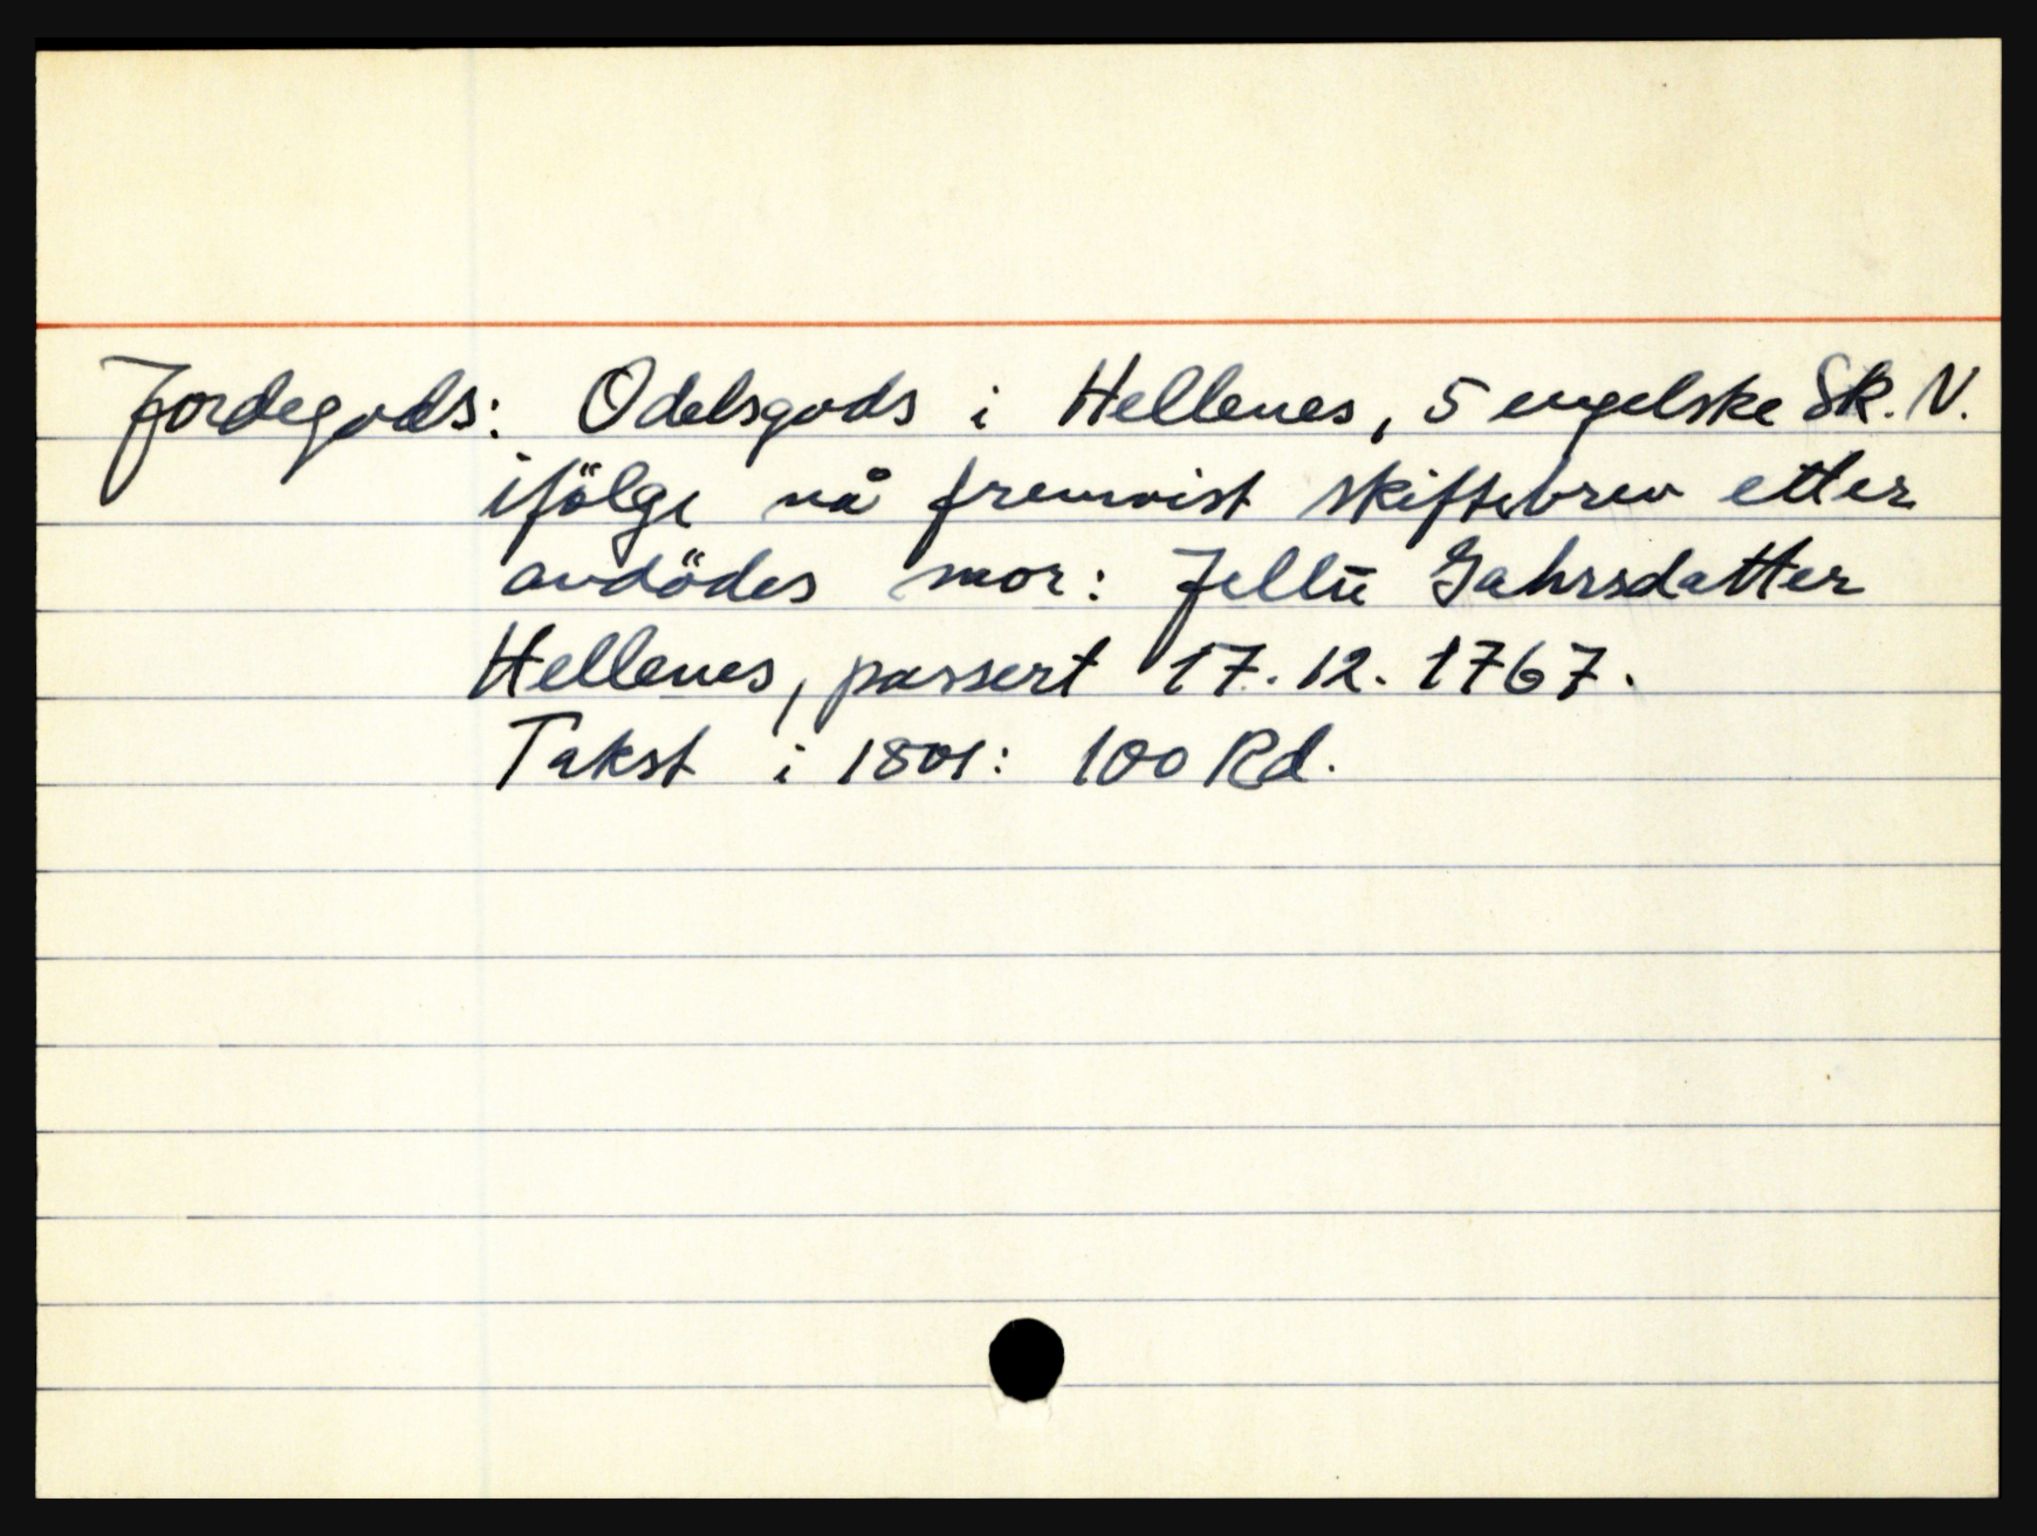 Jordegods: Odelsgods i Hellenes, 5 engelske Sk. N.
ifölge nå fremvist skiftebrev etter
avdödes mor: Jellū Gahrsdatter
Hellenes, passert 17.12.1767.
Takst i 1801: 100 Rd.